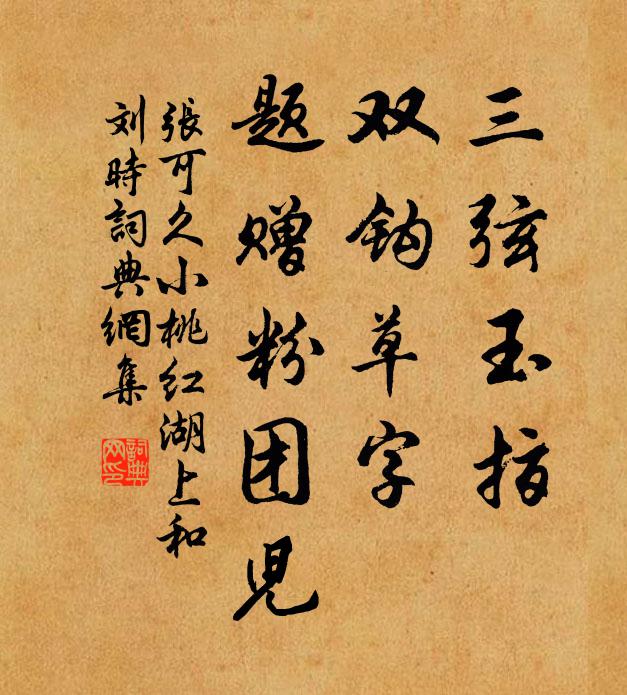 三弦玉指
双钩草字
题赠粉团児
張可久小桃红湖上和
刘時詞典網集
詞典網印